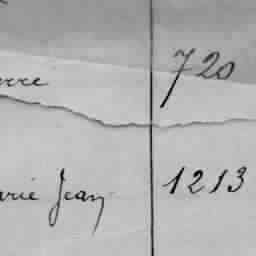 erre 720
arie Jean 1213